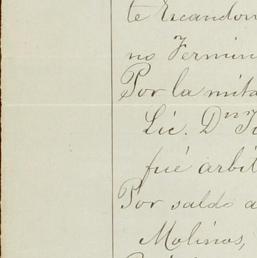 te Escandon
no Fermin
Por la mita
Lic. Dn
fué arbit
Por saldo a
Molinos,